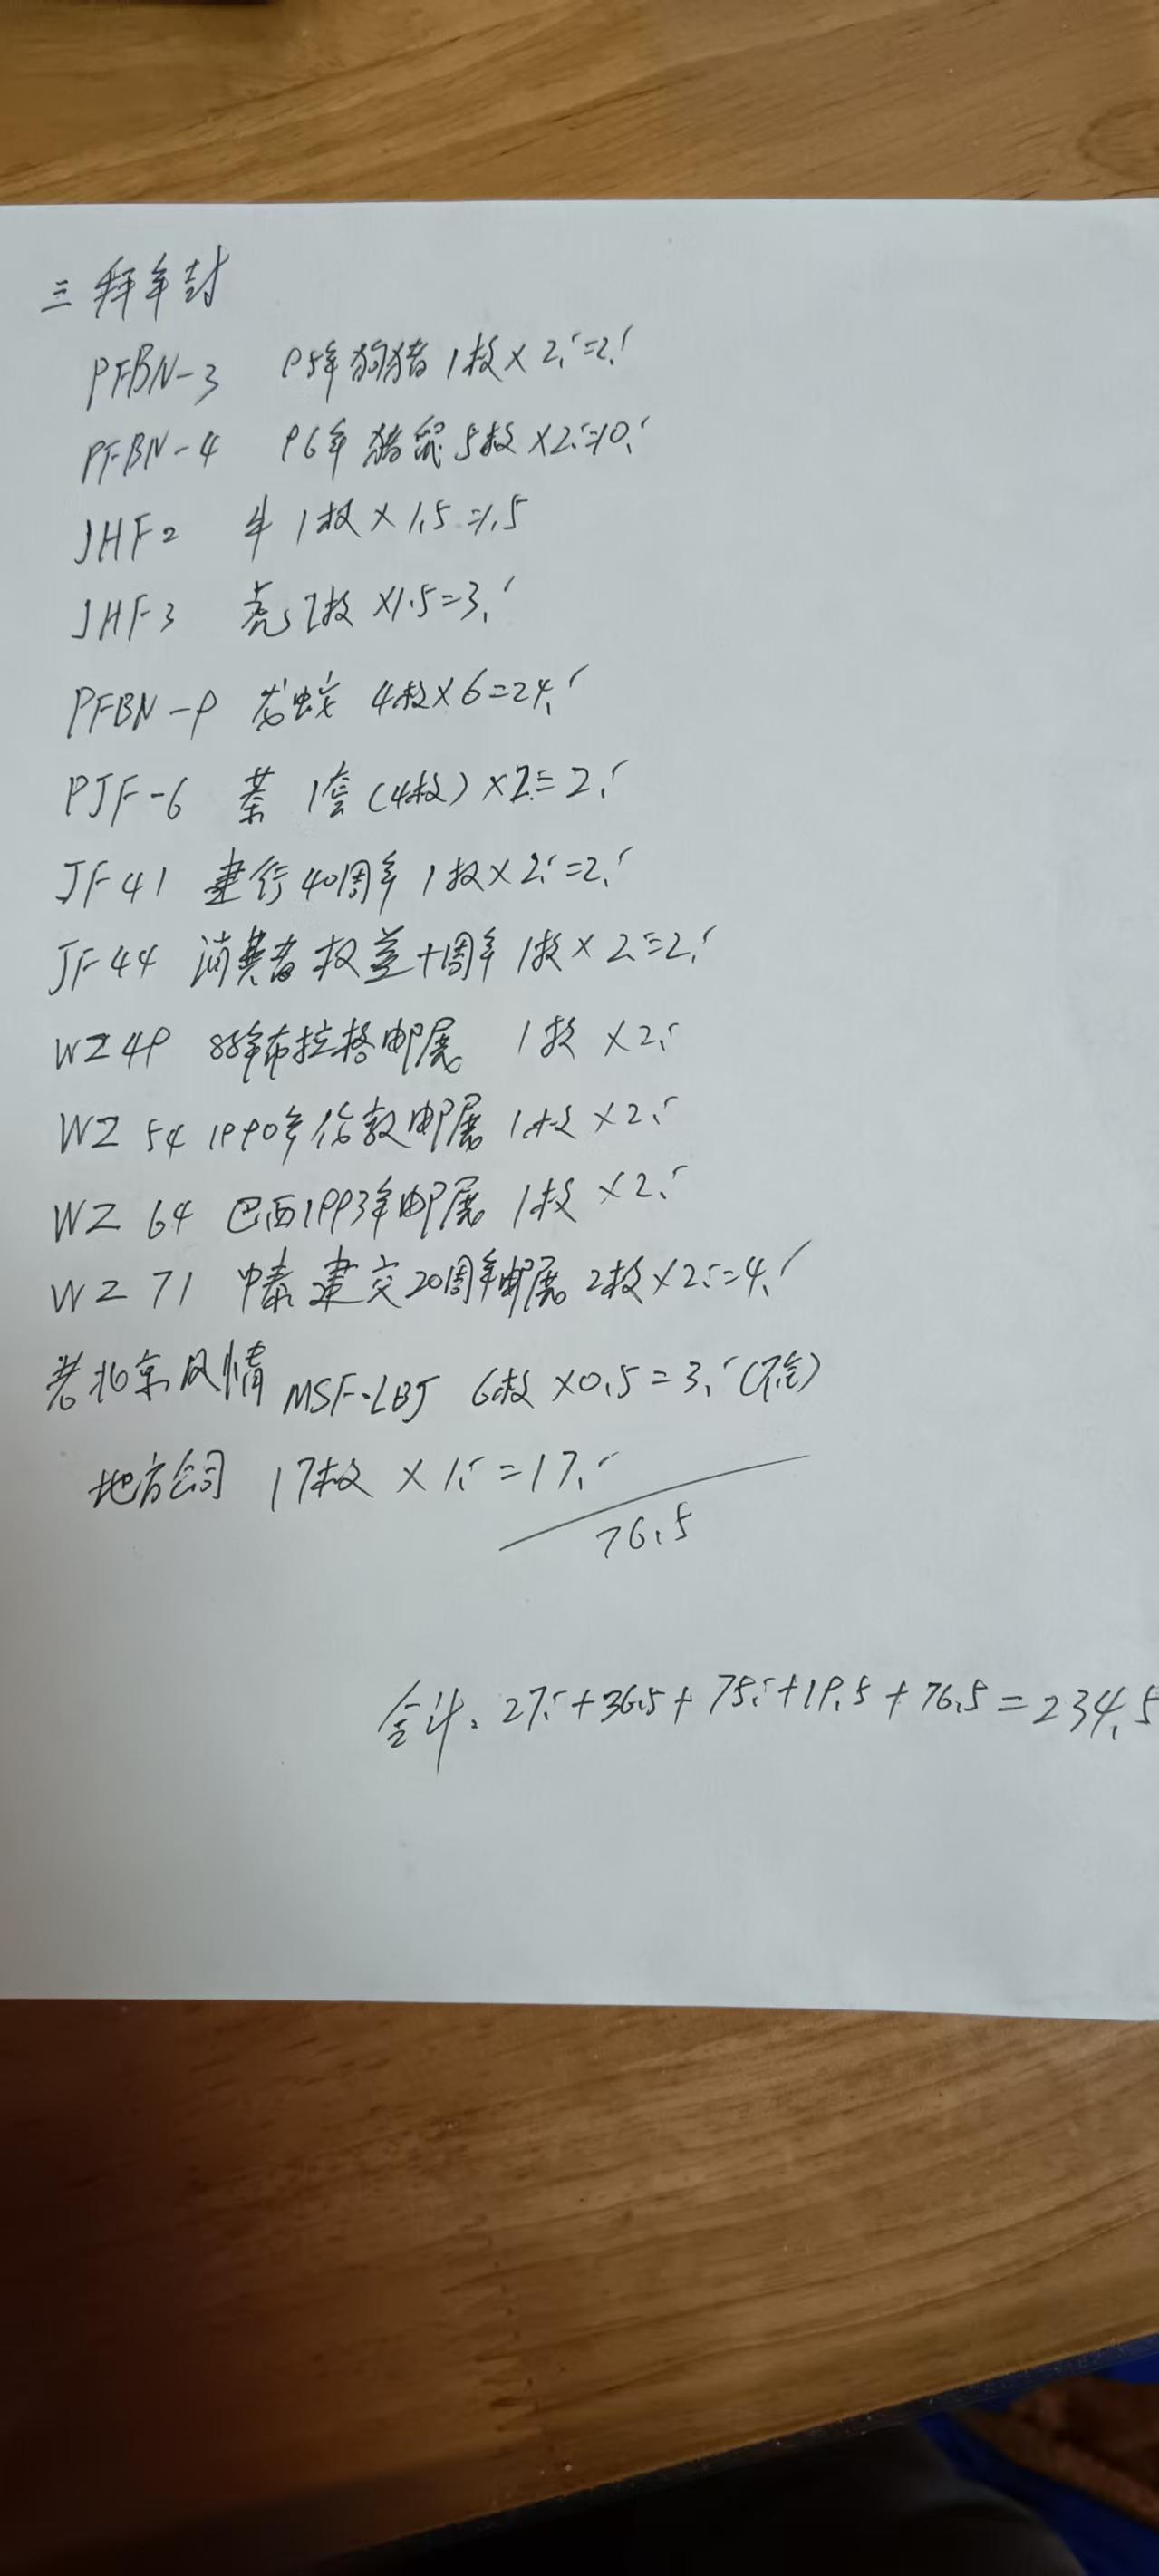 三 拜年封
PFBN-3 95年狗猪 1枚×2.-=2.-
PFBN-4 96年猪鼠 5枚×2.-=10.-
JHF2 牛 1枚×1.5=1.5
JHF3 虎 2枚×1.5=3.-
PFBN-9 龙蛇 4枚×6=24.-
PJF-6 茶 1套(4枚)×2.=2.-
JF41 建行40周年 1枚×2.-=2.-
JF44 消费者权益十周年 1枚×2.=2.-
WZ49 88年布拉格邮展 1枚×2.-
WZ 54 1990年伦敦邮展 1枚×2.-
WZ 64 巴西1993年邮展 1枚×2.-
WZ 71 中泰建交20周年邮展 2枚×2.-=4.-
老北京风情 MSF·LBJ 6枚×0.5=3.-
地方公司 17枚×1.-=17.-
76.5
合计. 27.-+36.5+75.-+19.5+76.5=234.5